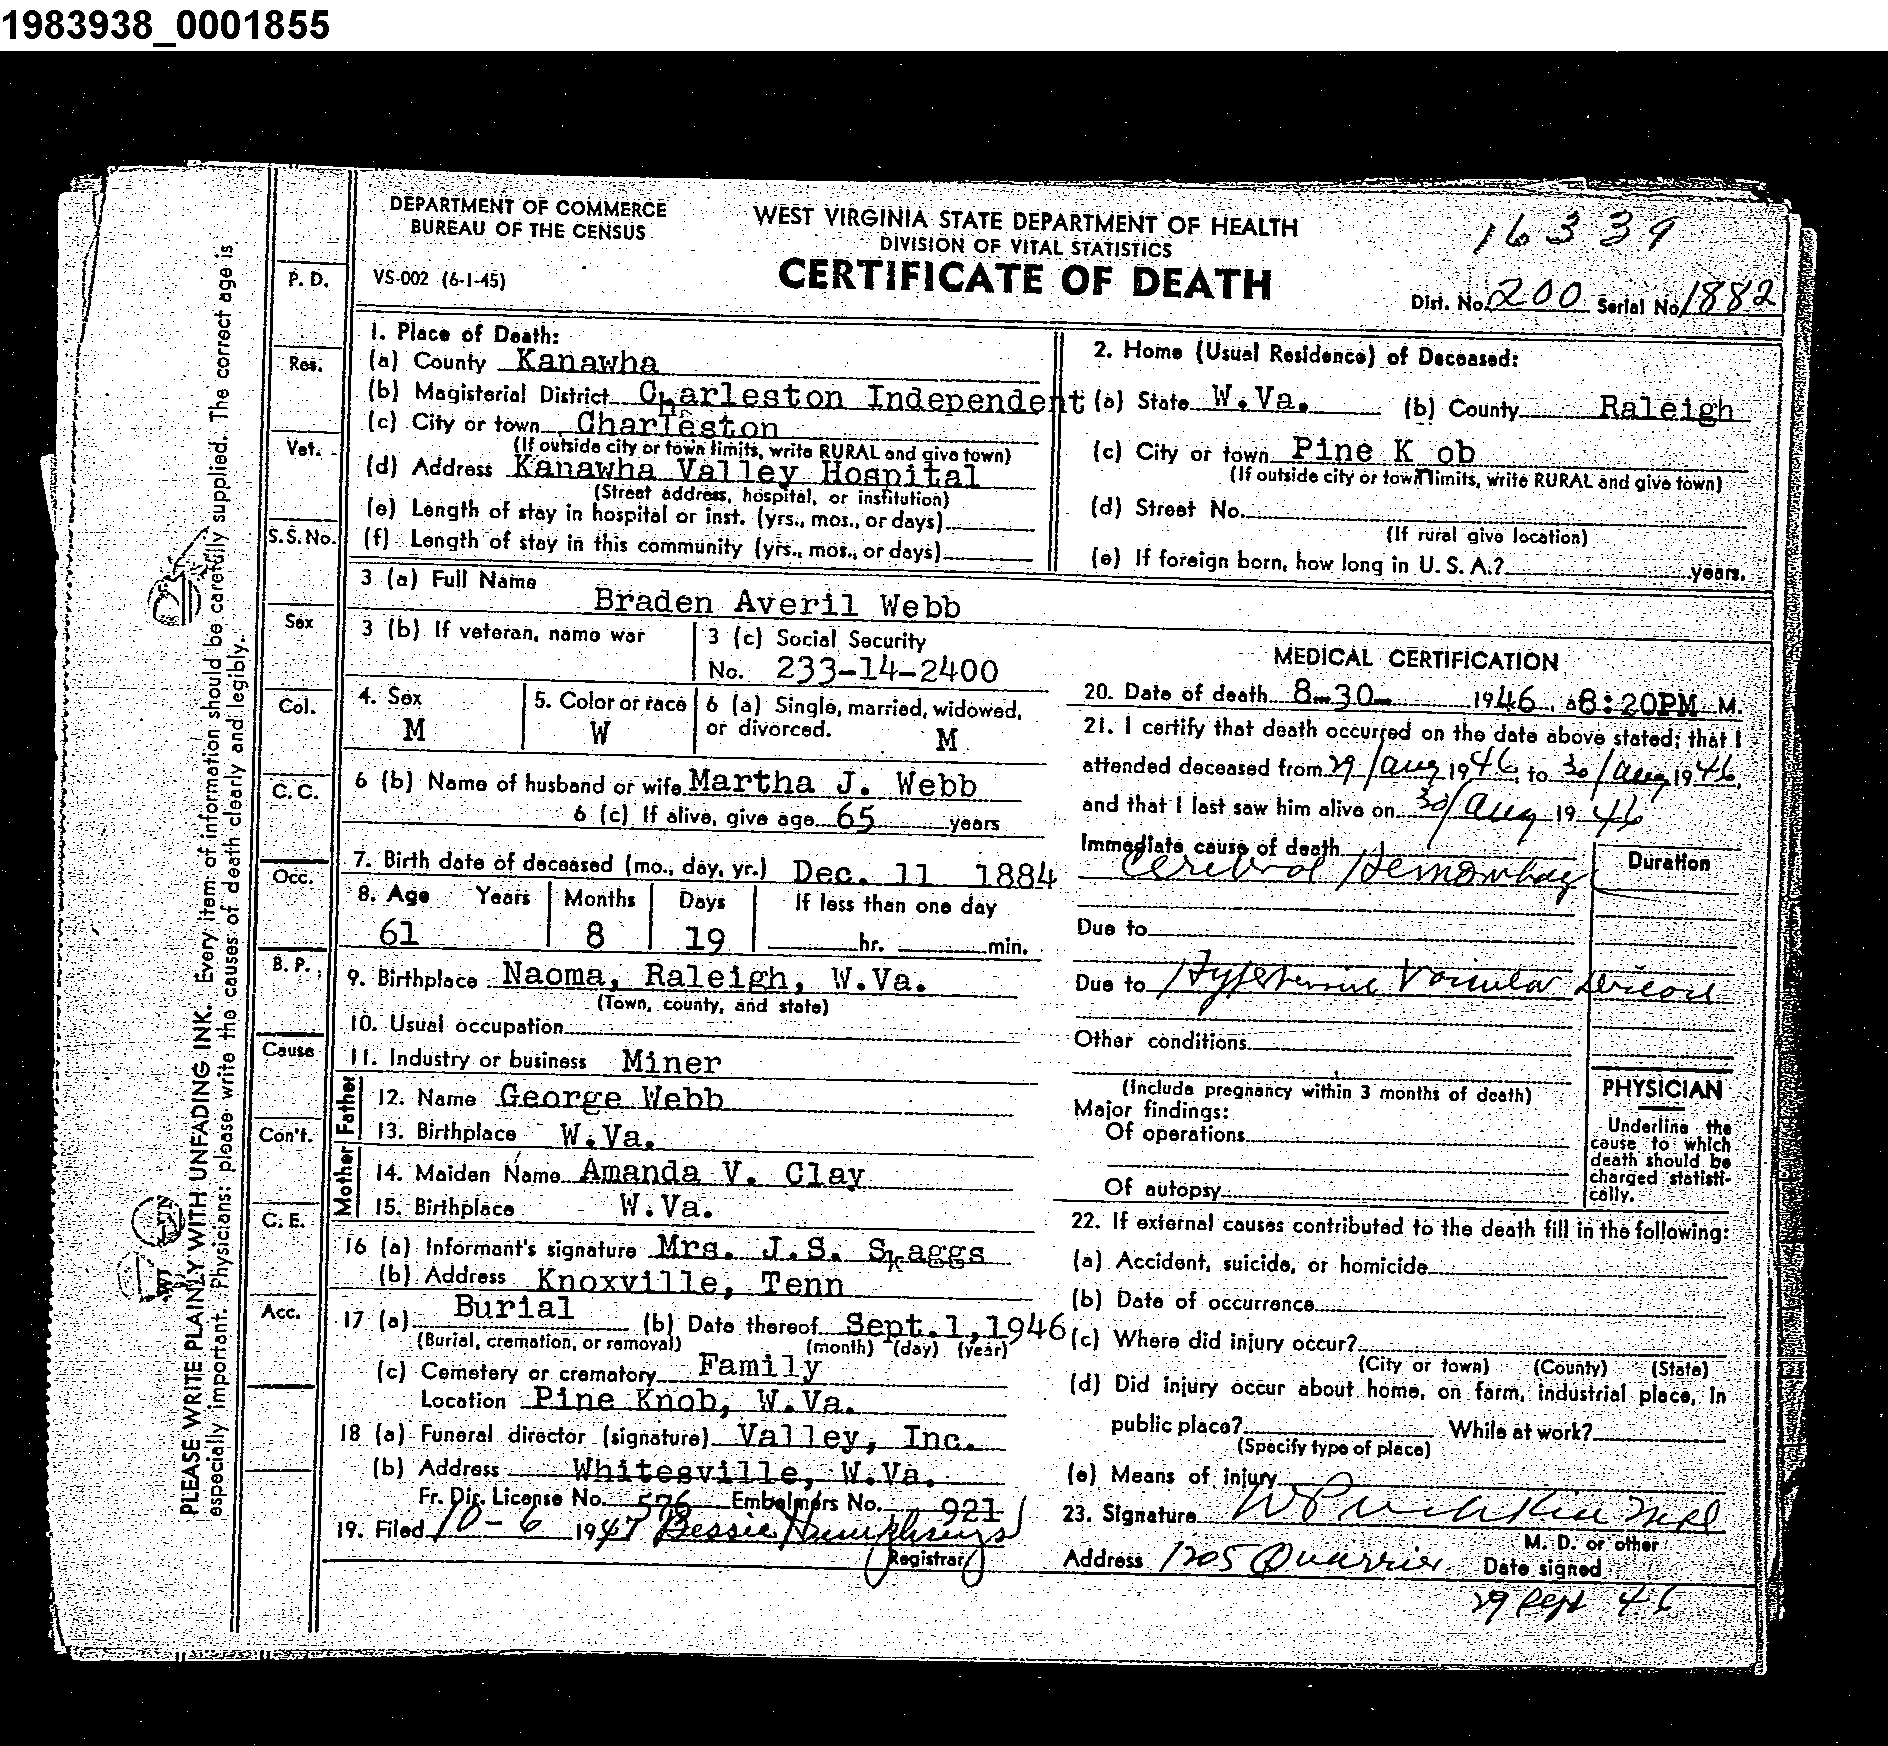 1983938_0001855
DEPARTMENT OF COMMERCE
BUREAU OF THE CENSUS
VS-002 (6-1-45)
WEST VIRGINIA STATE DEPARTMENT OF HEALTH
DIVISION OF VITAL STATISTICS
CERTIFICATE OF DEATH
16339
Dist. No. 200 Serial No. 1882
PLEASE WRITE PLAINLY WITH UNFADING INK. Every item of information should be carefully supplied. The correct age is
especially important. Physicians: please write the causes of death clearly and legibly.
P. D.
Res.
Vet.
S.S. No.
Sex
Col.
C. C.
Occ.
B. P.
Cause
Con't.
C. E.
Acc.
1. Place of Death:
(a) County Kanawha
(b) Magisterial District Charleston Independent
(c) City or town Charleston
(If outside city or town limits, write RURAL and give town)
(d) Address Kanawha Valley Hospital
(Street address, hospital, or institution)
(e) Length of stay in hospital or inst. (yrs., mos., or days)
(f) Length of stay in this community (yrs., mos., or days)
2. Home (Usual Residence) of Deceased:
(a) State W.Va. (b) County Raleigh
(c) City or town Pine K ob
(If outside city or town limits, write RURAL and give town)
(d) Street No.
(If rural give location)
(e) If foreign born, how long in U. S. A.? years.
3 (a) Full Name
Braden Averil Webb
3 (b) If veteran, name war
3 (c) Social Security
No. 233-14-2400
4. Sex
M
5. Color or race
W
6 (a) Single, married, widowed,
or divorced. M
6 (b) Name of husband or wife Martha J. Webb
6 (c) If alive, give age 65 years
7. Birth date of deceased (mo., day, yr.) Dec. 11 1884
8. Age Years Months Days If less than one day
61 8 19 hr. min.
9. Birthplace Naoma, Raleigh, W.Va.
(Town, county, and state)
10. Usual occupation
11. Industry or business Miner
Father
12. Name George Webb
13. Birthplace W.Va.
Mother
14. Maiden Name Amanda V. Clay
15. Birthplace W.Va.
16 (a) Informant's signature Mrs. J.S. Skaggs
(b) Address Knoxville, Tenn
17 (a) Burial (b) Date thereof Sept.1,1946
(Burial, cremation, or removal) (month) (day) (year)
(c) Cemetery or crematory Family
Location Pine Knob, W.Va.
18 (a) Funeral director (signature) Valley, Inc.
(b) Address Whitesville, W.Va.
Fr. Dir. License No. 576 Embalmers No. 921
19. Filed 10-6 1947 Bessie Humphreys
(Registrar)
MEDICAL CERTIFICATION
20. Date of death 8-30- 1946, a8:20PM M.
21. I certify that death occurred on the date above stated; that I
attended deceased from 29/Aug 1946, to 30/Aug 1946,
and that I last saw him alive on 30/Aug 1946
Immediate cause of death
Cerebral Hemorrhag
Duration
Due to
Due to Vascular
Other conditions
(Include pregnancy within 3 months of death)
Major findings:
Of operations
Of autopsy
PHYSICIAN
Underline the
cause to which
death should be
charged statisti-
cally.
22. If external causes contributed to the death fill in the following:
(a) Accident, suicide, or homicide
(b) Date of occurrence
(c) Where did injury occur?
(City or town) (County) (State)
(d) Did injury occur about home, on farm, industrial place, in
public place? While at work?
(Specify type of place)
(e) Means of injury
23. Signature
M. D. or other
Address 1205 Quarrier Date signed
29 Sept 46